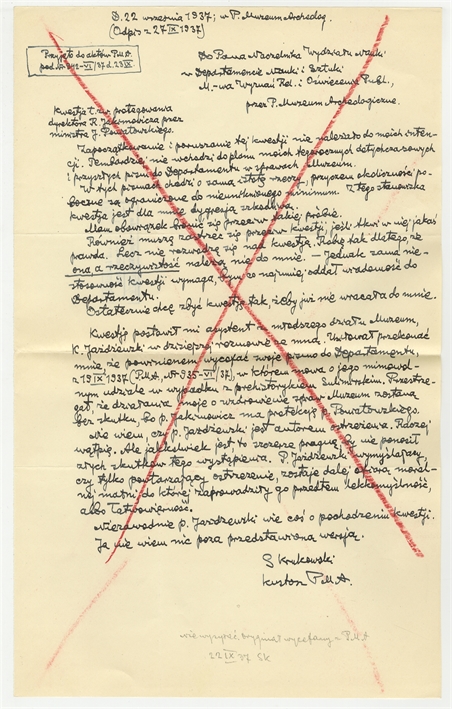 D. 22 września 1937; w P. Muzeum Archeolog.
(Odpis z 27 IX 1937)
Przyjęto do aktów P.M.A.
pod Nr -VI/37 d. 23 IX
Do Pana Naczelnika Wydziału Nauki
w Departamencie Nauki i Sztuki
M.-wa Wyznań Rel. i Oświecenia Publ.,
przez P. Muzeum Archeologiczne.
Kwestja t. zw. protegowania
dyrektora R. Jakimowicza przez
ministra J. Poniatowskiego.
Zapoczątkowanie i poruszanie tej kwestji nie należało do moich inten-
cji. Tembardziej nie wchodzi do planu moich tegorocznych dotychczasowych
i przyszłych pism do Departamentu w sprawach Muzeum.
W tych pismach chodzi o samą istotę rzeczy, przyczem okoliczności po-
boczne są ograniczone do nieuniknionego minimum. Z tego stanowiska
kwestja jest dla mnie dygresją szkodliwą.
Mam obowiązek bronić się przeciw takiej próbie.
Również muszę zastrzec się przeciw kwestji, jeśli tkwi w niej jakaś
prawda. Lecz nie rozwodzę się nad kwestją. Robię tak dlatego, że
ona, a rzeczywistość należą nie do mnie. — Jednak sama nie-
stosowność kwestji wymaga, bym co najmniej oddał wiadomość do
Departamentu.
Ostatecznie chcę zbyć kwestję tak, żeby już nie wracała do mnie.
Kwestję postawił mi asystent z młodszego działu Muzeum,
K. Jażdżewski w dzisiejszej rozmowie ze mną. Usiłował przekonać
mnie, że powinienem wycofać swoje pismo do Departamentu,
z 19 IX 1937 (P.M.A., Nr 935-VI/37), w którem mowa o jego mimowol-
nym udziale w wypadku z prehistorykiem Sulimirskim. Przestrze-
gał, że działania moje o uzdrowienie spraw Muzeum zostaną
bez skutku, bo p. Jakimowicz ma protekcję p. Poniatowskiego.
Nie wiem, czy p. Jażdżewski jest autorem ostrzeżenia. Raczej
wątpię. Ale jakkolwiek jest to szczerze pragnę, by nie ponosił
złych skutków tego wystąpienia. P. Jażdżewski wymyślający,
czy tylko powtarzający ostrzeżenie, zostaje dalej ofiarą moral-
nej matni, do której zaprowadziły go przedtem lekkomyślność,
albo łatwowierność.
Niezawodnie p. Jażdżewski wie coś o pochodzeniu kwestji.
Ja nie wiem nic poza przedstawioną wersją.
S Krukowski
Kustosz P.M.A.
nie wysyłać. Oryginał wycofany z P.M.A
22 IX 37 SK